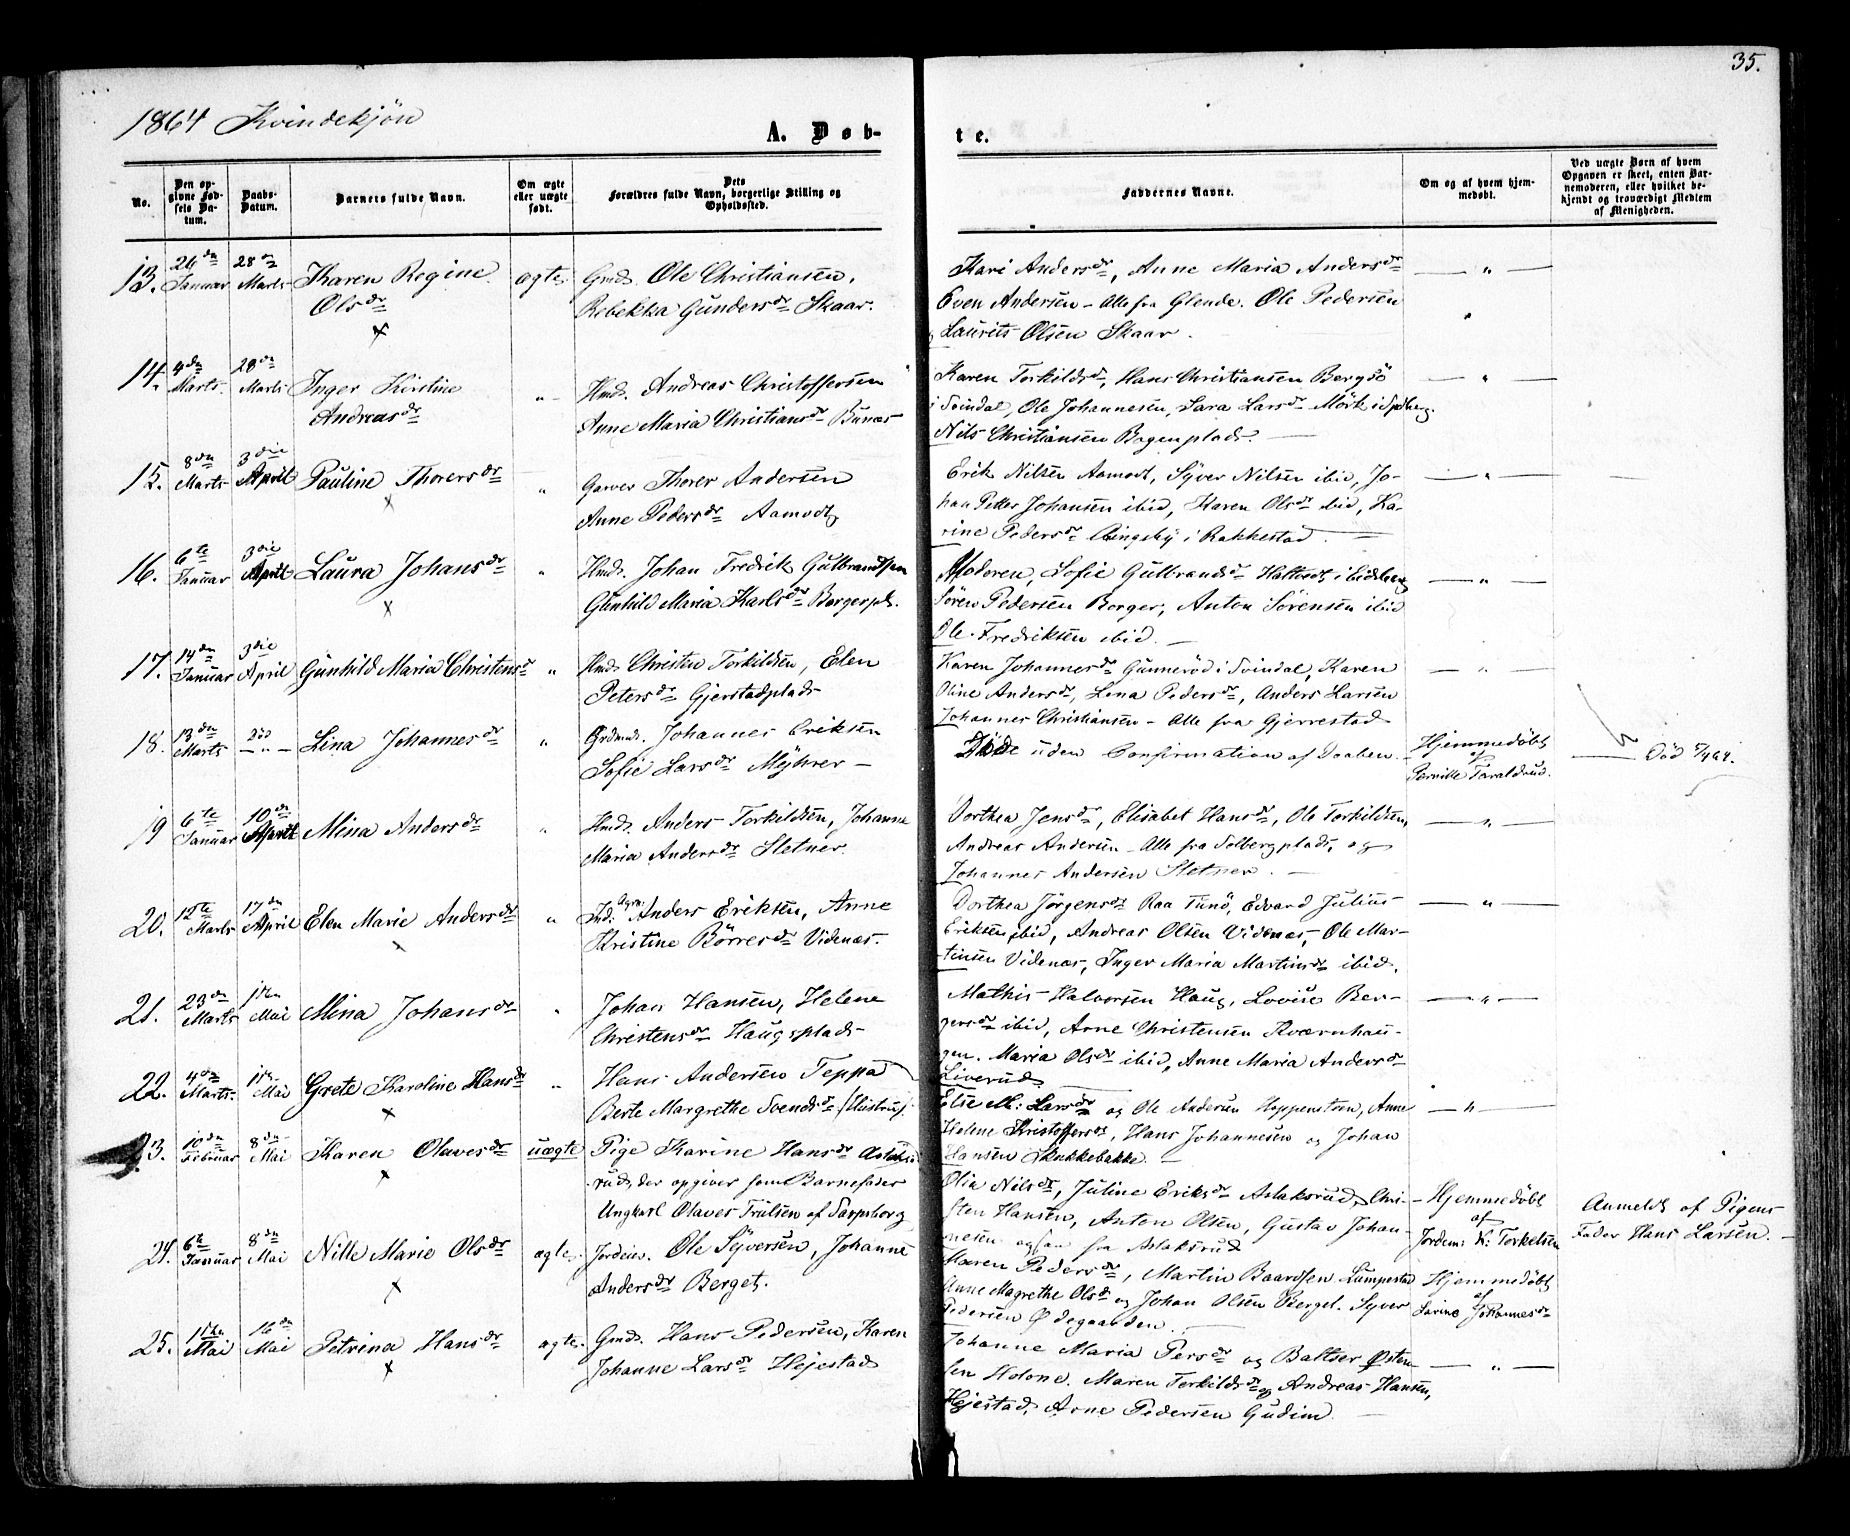 35.
1864 Kvindekjøn
A. Døb-
te.
No.
Den op-
givne Fød-
sels Da-
tum.
Daabs-
Datum.
Barnets fulde Navn.
Om ægte
eller uægte
født.
Dets
Forældres fulde Navn, borgerlige Stilling og
Opholdssted.
Faddernes Navne.
Om og af hvem hjem-
medøbt.
Ved uægte Børn af hvem
Opgaven er skeet, enten Bar-
nemoderen, eller hvilket be-
kjendt og troværdigt Medlem
af Menigheden.
13. 26de Januar 28de Marts Karen Regine ægte Gmd. Ole Christiansen,
Olsdr Rebekka Gundersdr Skaar.
Kari Andersdr, Anne Maria Andersdr — " —
Even Andersen - Alle fra Glende. Ole Pedersen
Laurits Olsen Skaar.
14. 4de Marts 28de Marts Inger Kirstine " Hmd. Andreas Christoffersen
Andreasdr Anne Maria Christiansdr Bunæs
Karen Torkildsdr, Hans Christiansen Bergsö — " —
i Svindal, Ole Johannesen, Sara Larsdr Mörk i Spdberg.
Nils Christiansen Bøgenplads.
15. 8de Marts 3die April Pauline Thorersdr " Garver Thorer Andersen
Anne Pedersdr Aamodt
Erik Nilsen Aamodt, Syver Nilsen ibid, Jo- — " —
han Petter Johansen ibid, Karen Olsdr ibid, Ka-
rine Pedersdr i Rakkestad.
16. 6te Januar 3die April Laura Johansdr " Hmd. Johan Fredrik Gulbrandsen
Gunhild Maria Karlsdr Borgerpl.
Moderen, Sofie Gulbrandsdr i Eidsberg — " —
Sören Pedersen Borger, Anton Sörensen ibid
Ole Fredriksen ibid.
17. 14de Januar 3die April Gunhild Maria Christensdr " Hmd. Christen Torkildsen, Elen
Petersdr Gjerstadplads
Karen Johannesdr Gunneröd i Svindal, Karen — " —
Oline Andersdr, Lina Pedersdr, Anders Larsen
Johannes Christiansen - Alle fra Gjerrestad
18. 13de Marts — " — Lina Johannesdr " Grdmd. Johannes Eriksen
Sofie Larsdr Mÿhrer —
Döde uden Confirmation af Daaben. Hjemmedøbt af Død 5/4 64.
Pernille Taraldrud.
19 6te Januar 10de April Mina Andersdr " Hmd. Anders Torkildsen, Johanne
Maria Andersdr Sletner.
Dorthea Jensdr, Elisabet Hansdr, Ole Torkildsen, — " —
Andreas Andersen - Alle fra Solbergplads, og
Johannes Andersen Sletner.
20. 12te Marts 17de April Elen Marie Andersdr " Ind. Anders Eriksen, Anne
Kristine Börresdr Videnæs.
Dorthea Jörgensdr Raa Tunö, Edvard Julius — " —
Eriksen ibid, Andreas Olsen Videnæs, Ole Mar-
tinsen Videnæs, Inger Maria Martinsdr ibid.
21. 23de Marts 1ste Mai Mina Johansdr " Johan Hansen, Helene
Christensdr Haugsplads
Mathis Halvorsen Haug, Lovise Ber- — " —
gersdr ibid, Arne Christensen Kværnhau-
gen. Maria Olsdr ibid, Anne Maria Andersdr
Liverud.
22. 4de Marts 1ste Mai Grete Karoline Hansdr " Hans Andersen Teppa
Berte Margrethe Svendsdr
Else M: Larsdr og Ole Andersen Hoppensteen, Anne — " —
Helene Kristoffersdr, Hans Johannesen og Johan
Hansen Skukkebakke.
23. 10de Februar 8de Mai Karen Olavesdr uægte Pige Karine Hansdr Aslak-
rud, der opgiver som Barnefader
Ungkarl Olaves Trulsen af Sarpsborg
Olia Nilsdr, Juline Eriksdr Aslaksrud, Chri- Hjemmedøbt af Anmeldt af Pigens
sten Hansen, Anton Olsen, Gustav Johan- Jordem: K: Torkelsen Fader Hans Larsen.
nesen ogsaa fra Aslaksrud
24. 6te Januar 8de Mai Nille Marie Olsdr ægte Jordeier Ole Syversen, Johanne
Andersdr Berget.
Maren Pedersdr, Martin Baardsen Lumpestad Hjemmedøbt af
Anne Magrethe Olsdr og Johan Olsen Berget. Syver Larine Johannesdr
Pedersen Ødegaarden.
25. 1ste Mai 16de Mai Petrina Hansdr ægte. Gmd. Hans Pedersen, Karen
Johanne Larsdr Hejestad
Johanne Maria Persdr og Baltser Østen- — " —
sen Holone. Maren Torkildsdr og Andreas Hansen,
Hejestad, Arne Pedersen Gudim.